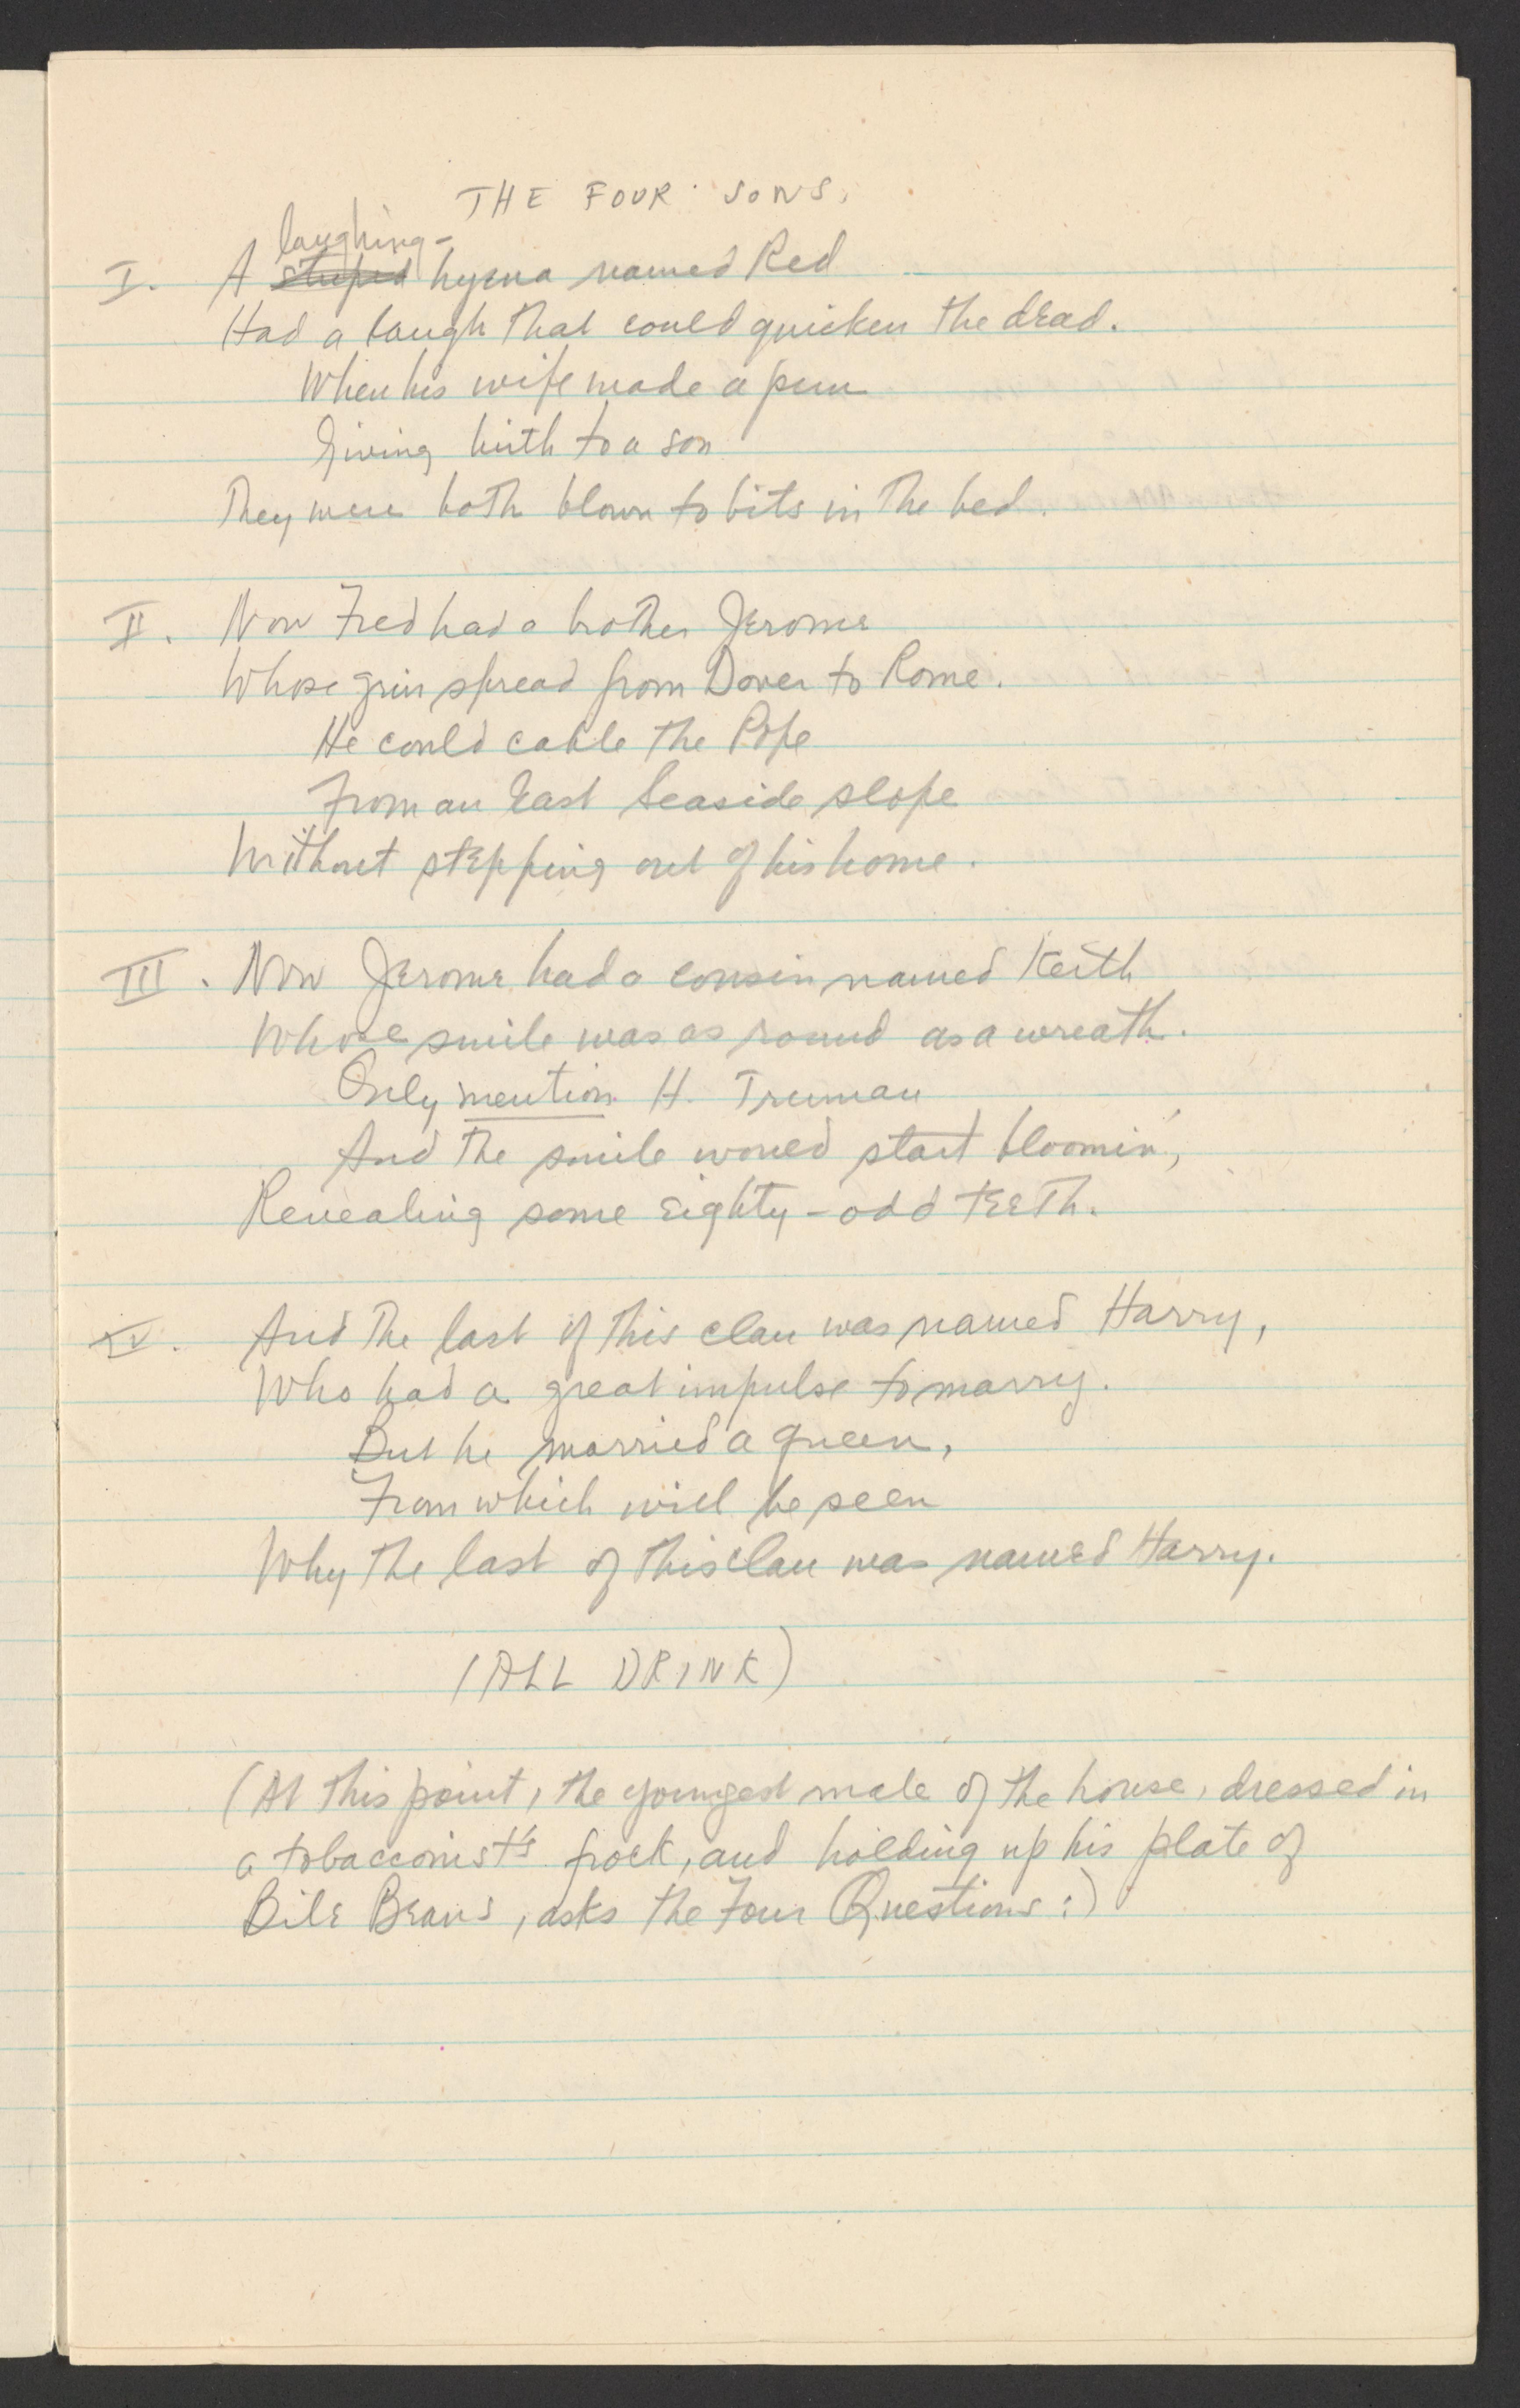 THE FOUR SONS.
laughing-
I. A striped hyena named Red
Had a laugh that could quicken the dead.
When his wife made a pun
Giving birth to a son
They were both blown to bits in the bed.
II. Now Fred had a brother Jerome
Whose grin spread from Dover to Rome.
He could cable the Pope
From an East Seaside slope
Without stepping out of his home.
III. Now Jerome had a cousin named Keith
Whose smile was as round as a wreath.
Only mention H. Truman
And the smile would start bloomin',
Revealing some eighty-odd teeth.
IV. And the last of this clan was named Harry,
Who had a great impulse to marry.
But he married a queen,
From which will be seen
Why the last of this clan was named Harry.
(ALL DRINK)
(At this point, the youngest male of the house, dressed in
a tobacconist's frock, and holding up his plate of
Bile Beans, asks the Four Questions:)